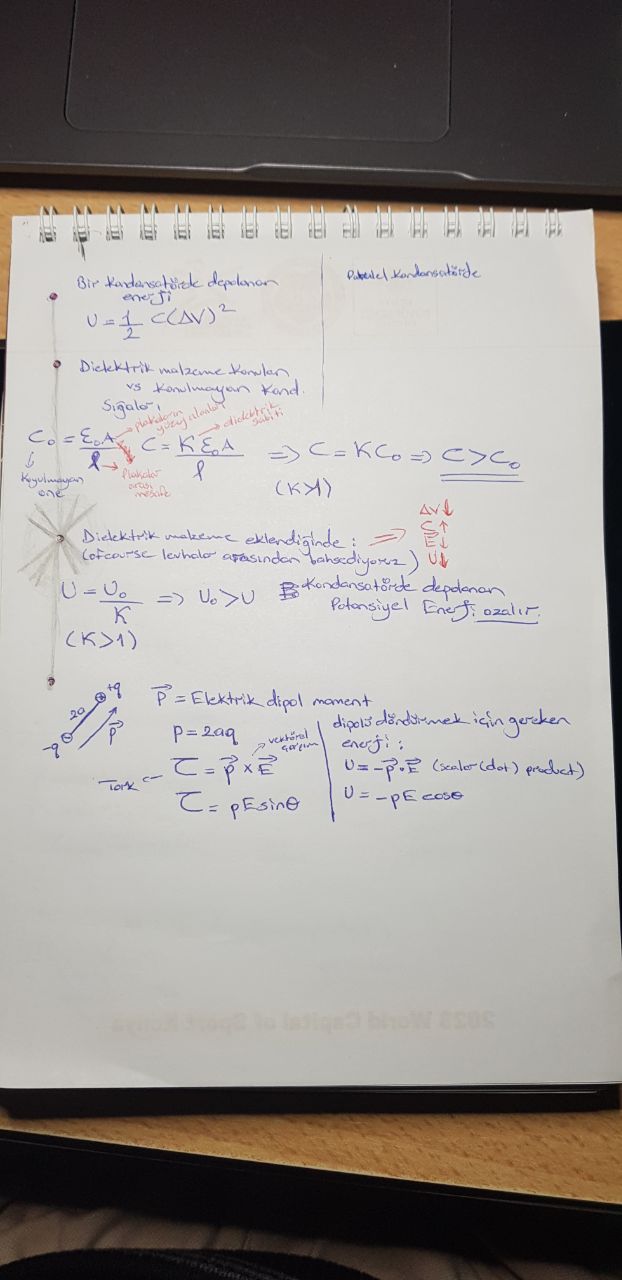 Bir Kondansatörde depolanan
enerji
U = 1/2 C(ΔV)²
Paralel Kondansatörde
Dielektrik malzeme Konulan
vs Konulmayan Kond.
Sığaları
C₀ = ε₀A/l
plakaların yüzey alanları
plakalar arası mesafe
Koyulmayan
C = Kε₀A/l
dielektrik sabiti
=> C = KC₀ => C > C₀
(K>1)
Dielektrik malzeme eklendiğinde :
(ofcourse levhalar arasından bahsediyoruz)
=>
ΔV↓
C↑
E↓
U↓
U = U₀/K => U₀ > U
(K>1)
Kondansatörde depolanan
Potansiyel Enerji azalır.
+q
2a
-q
p⃗
p⃗ = Elektrik dipol moment
p = 2aq
vektörel çarpım
Tork
τ = p⃗ × E⃗
τ = pEsinθ
dipolü döndürmek için gereken
enerji :
U = -p⃗·E⃗ (scalar(dot) product)
U = -pEcosθ
2023 World Capital of Sport Konya